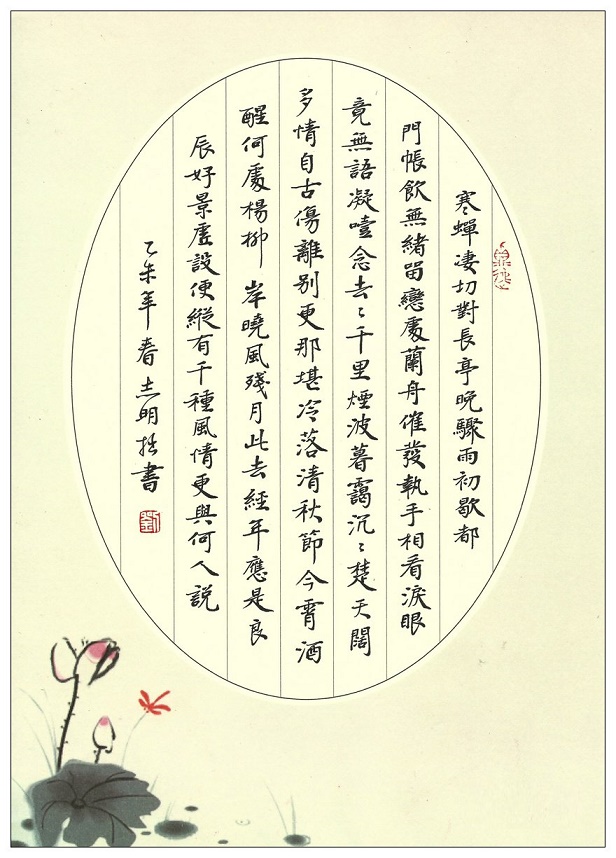 寒蟬凄切對長亭晚驟雨初歇都
門帳飲無緒留戀處蘭舟催發執手相看淚眼
竟無語凝噎念去〻千里煙波暮靄沉〻楚天闊
多情自古傷離別更那堪冷落清秋節今宵酒
醒何處楊柳岸曉風殘月此去經年應是良
辰好景虛設便縱有千種風情更與何人説
乙未年春志明拙書
劉